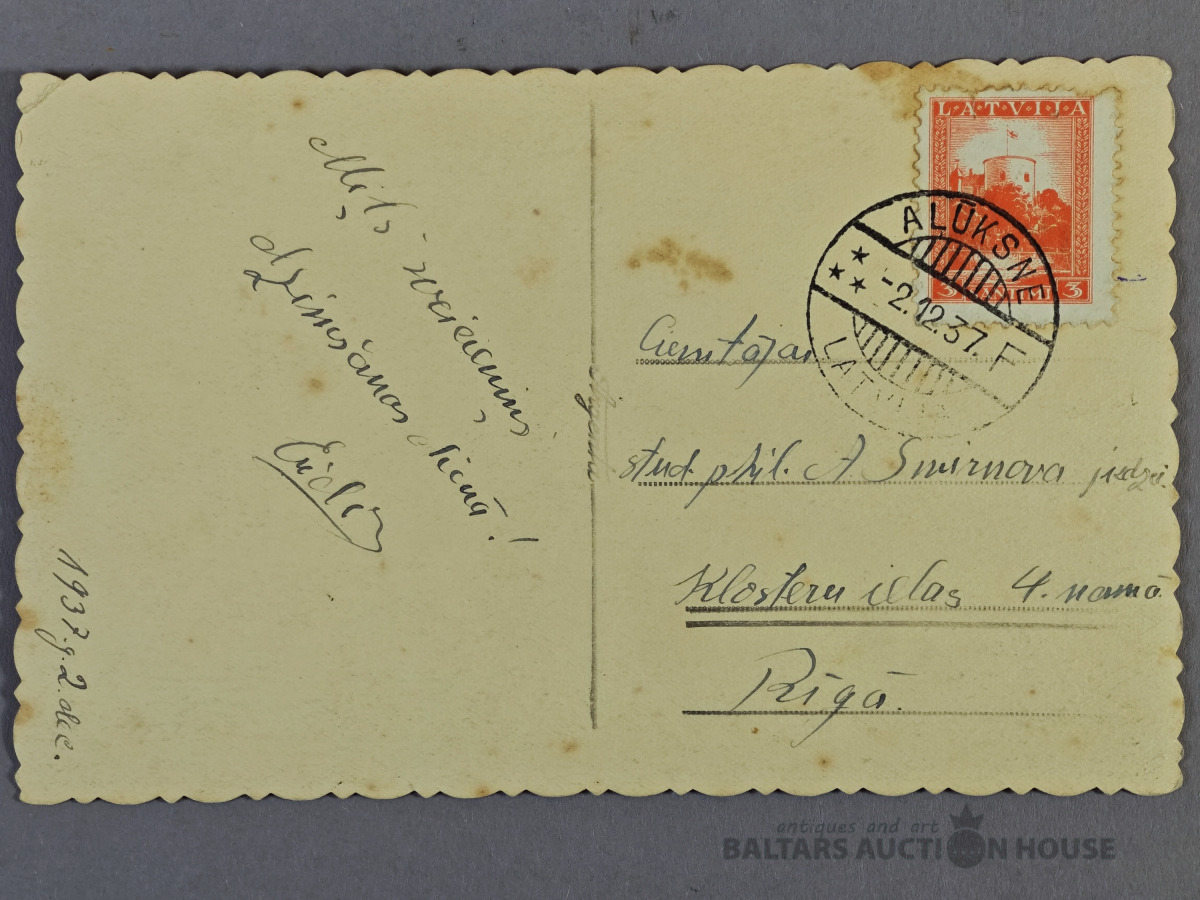 Mīļš sveiciens
dzimšanas dienā!
1937.g.2.dec.
LATVIJA
3 SANTIMI 3
ALŪKSNE
-2.12.37. F
LATVIJA
Cienītājai
stud. phil. A Smirnova jkdzei
Klosteru ielas 4. namā
Rīgā.
antiques and art
BALTARS AUCTION HOUSE